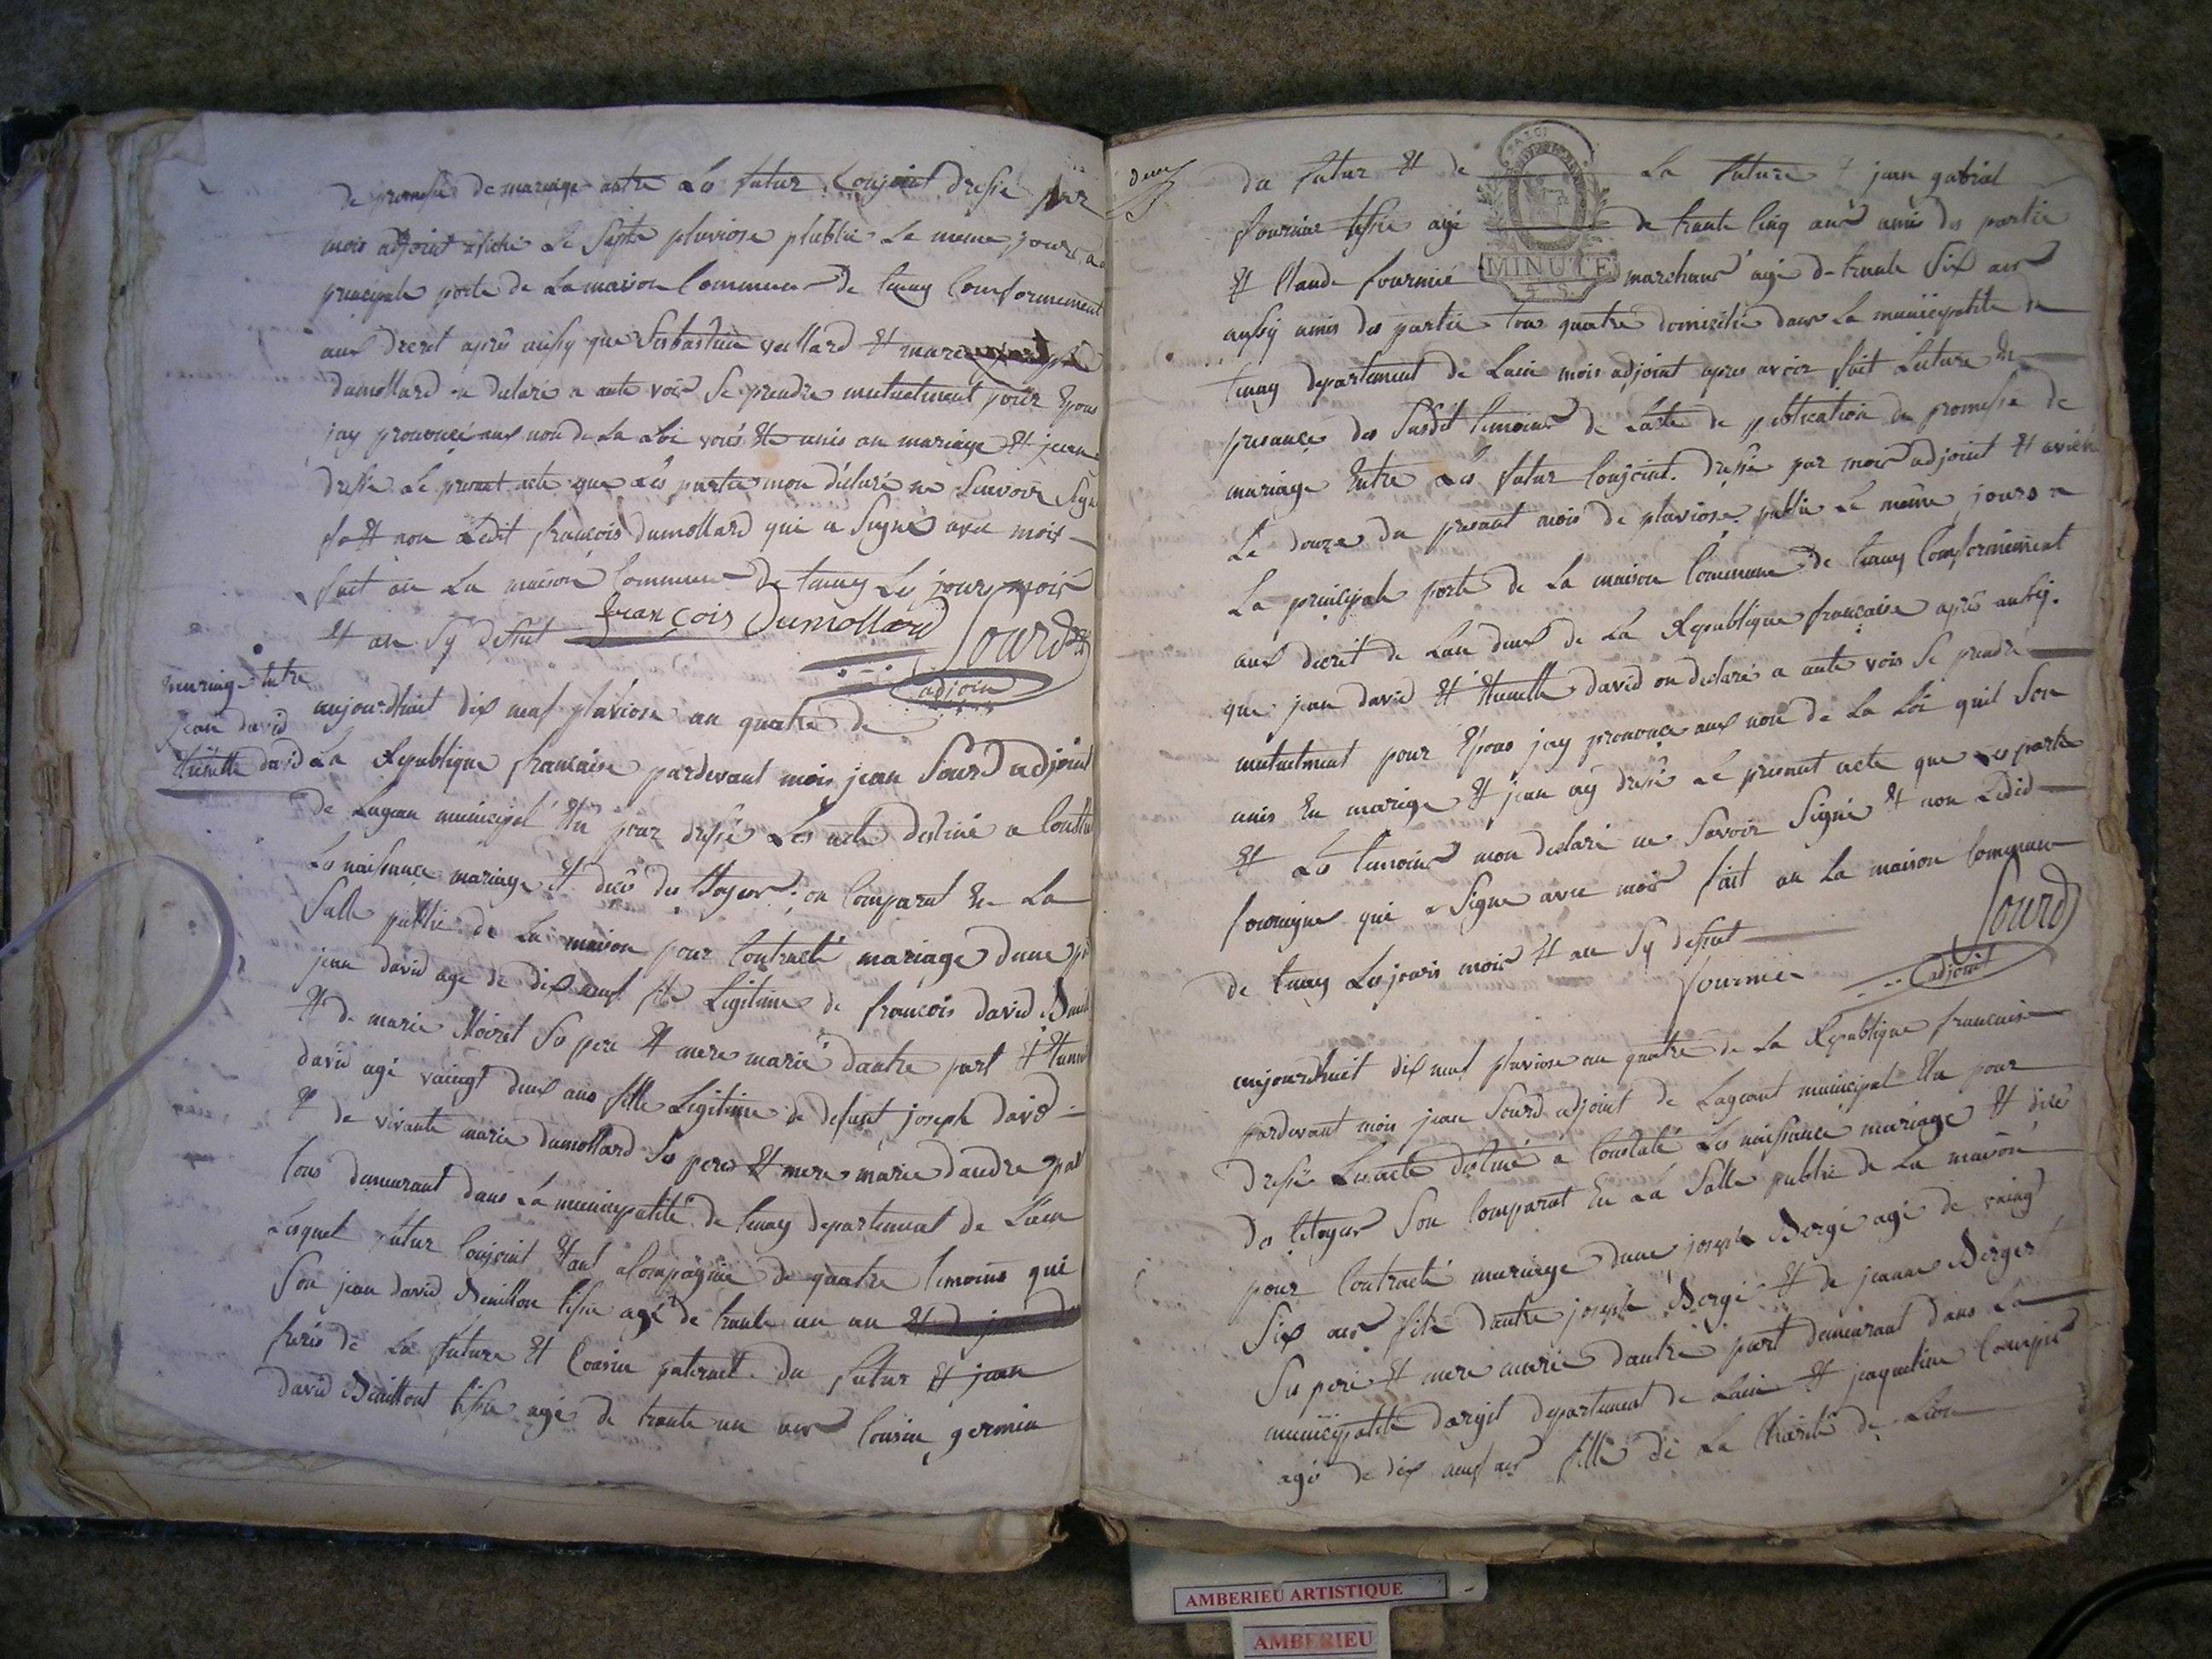 de promesse de mariage antre Les futur Conjoint dressé par
mois adjoint afiché Le septe pluviose publié Le meme jours a
principale porte de La maison Commune de tenay Conformement
aux decret après aussy que Sebastien vullard Et marie
dumollard a declaré a aute vois Se prendre mutuelment pour Epous
jay prononcé aux non de La Loi unis an mariage Et jean
dressé Le presant acte que Les partie mon déclaré ne Savoir Signé
Et non Ledit françois dumollard qui a Signé avec mois
fait an La maison Commune de tenay Les jours mois
Et an Sy dessut françois Dumollard Sourd
adjoin
mariage Entre
jean david
Etienette david
aujourdhuit dix neuf pluviose an quatre de
La Republique francaise pardevant mois jean Sourd adjoint
de Lagean municipal Elu pour dressé Les acte destiné a Constaté
Les naissance mariage Et decé des sitoyens on Comparut En La
Salle public de La maison pour Contracté mariage dune part
jean david agé de dix neuf fils Legitime de françois david
Et de marie Moiret Ses pere Et mere marié dautre part Et
david agé vaingt deux ans fille Legitime de defunt joseph david
Et de vivante marie dumollard Ses peres Et mere marie dautre part
tous demeurant dans La municipalité de tenay departement de Lain
Lesquel futur Conjoint Etant aCompagnié de quatre temoins qui
Son jean david Beaillon tissie agé de trante un an
freris de La future Et Cousin paternel du futur Et jean
david Beaillont tissie agé de trante un ans Cousin germin
deux
du futur Et de La future Et jean gabriel
fournie tissie agé de trante Cinq ans amis des partie
Et Claude fournié marchand agé de trante Six ans
MINUTE
aussy amis des partie tous quatre domicilié dans La municipalité de
tenay departement de Lain mois adjoint apres avoir fait Lecture En
presance des Susdit temoins de Lacte de publication de promesse de
mariage Entre Les futur Conjoint dressé par mois adjoint Et afiché
Le douze du presant mois de pluviose publié Le même jours a
La principale porte de La maison Commune de tenay Conformement
aux decret de Lan deux de La Republique française après aussy
que jean david Et Etienette david on declaré a aute vois Se prandre
mutuelment pour Epous jay prononcé aux non de La Loi quil Son
unis En mariage Et jean ay dressé Le presant acte que Les partie
Et Les temoins mon declaré ne Savoir Signé Et non Ledid
fournie qui a Signé avec mois fait an La maison Commune
de tenay Les jours mois Et an Sy dessut
fournie Sourd
adjoint
aujourdhuit dix neuf pluviose an quatre de La Republique francaise
pardevant mois jean Sourd adjoint de Lageant municipal Elu pour
dressé Les acte destiné a Constaté Les naissance mariage Et décé
des sitoyens Son Comparut En La Salle public de La maison
pour Contracté mariage dune joseph Bergé agé de vaingt
Six ans fils dautre joseph Bergé Et de jeanne Berger
Ses pere Et mere marié dautre part demeurant dans La
municipalité dargit departement de Lain Et jaqueline
agé de dix neuf ans fille de La Charité de Lion
AMBERIEU ARTISTIQUE
AMBERIEU